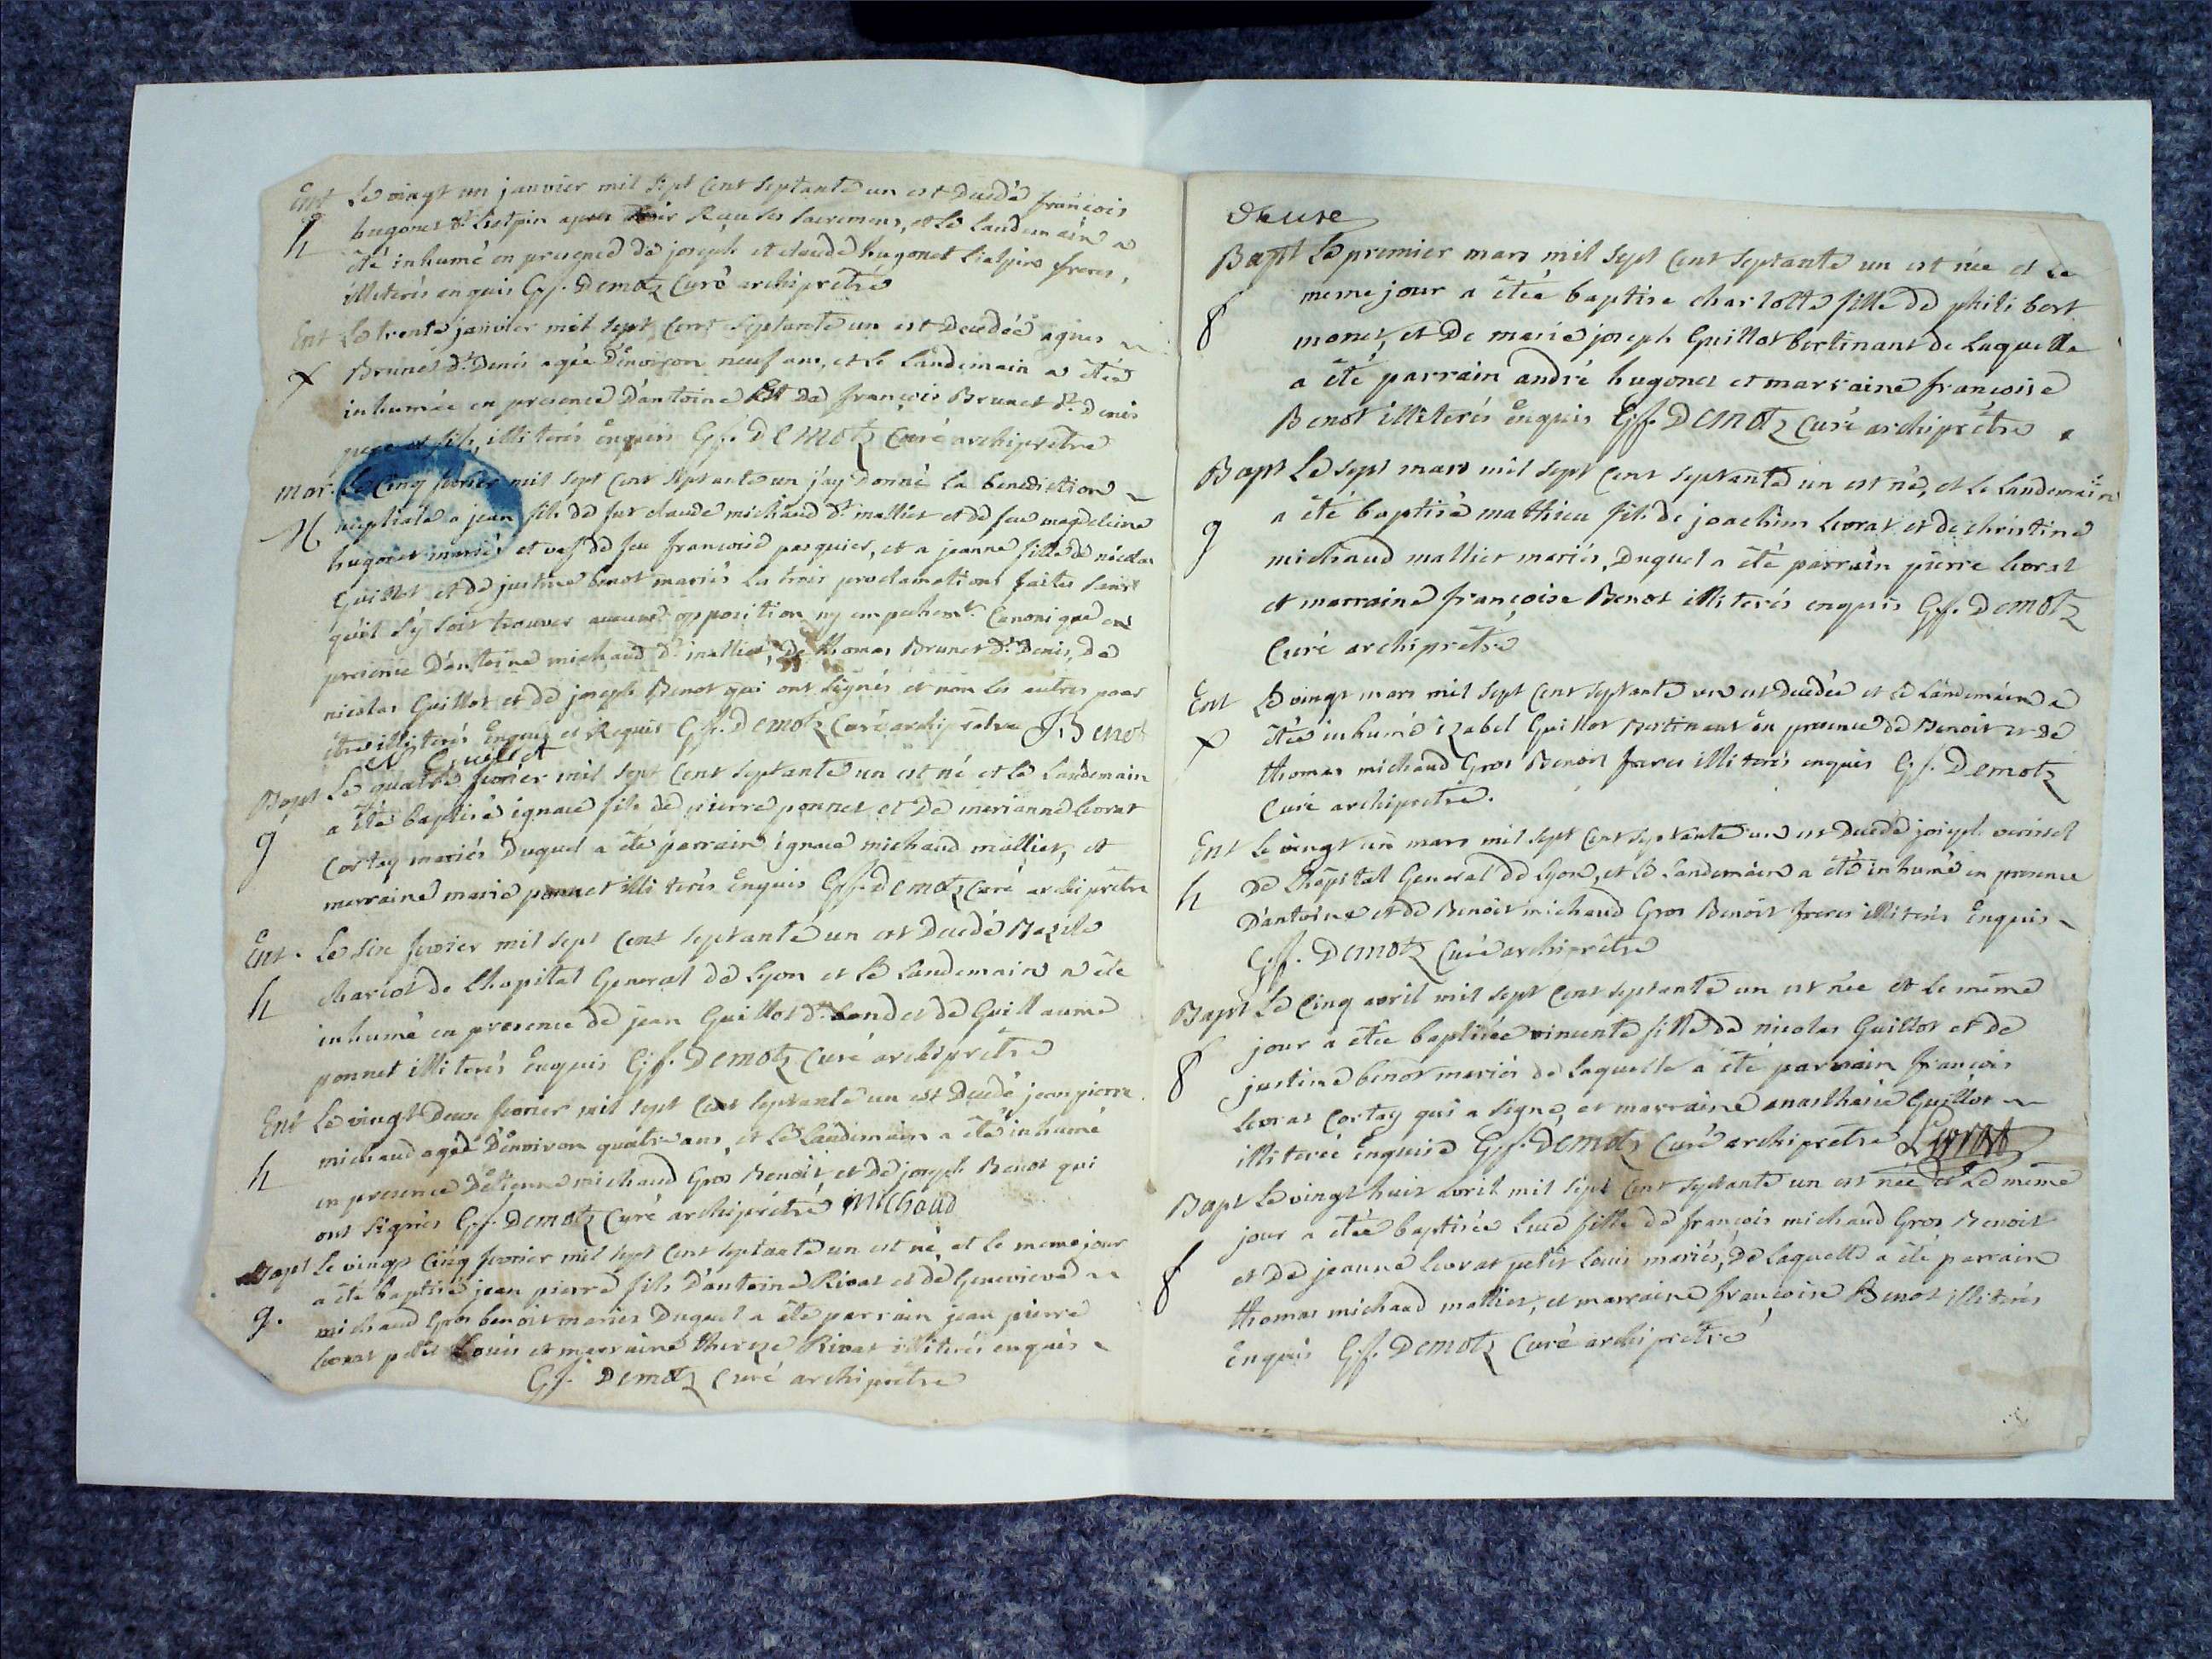 Ent Le vingt un janvier mil sept cent septante un est decedé françois
h hugonet dt liatpin apres avoir Reçu les sacremens, et le landemain a
été inhumé en presence de joseph et claude hugonet liatpin freres,
illiterés enquis Gf. Demotz Curé archiprétre
Ent Le trente janvier mil sept cent septante un est decedée agnes
f Brunet dt Denis agée d'environ neuf ans, et le landemain a étée
inhumée en presence d'antoine Et de françois Brunet dt Denis
pere et fils, illiterés enquis Gf. Demotz Curé archiprétre
mar. Le Cinq fevrier mil sept cent septante un j'ay donné la benediction
N nuptiale a jean fils de feu claude michaud dt mallier et de feue magdeleine
hugonet mariés et vef de feu françoise pasquier, et a jeanne fille de nicolas
Guillot et de justine benot mariés la trois proclamations faites sans
qu'il s'y soit trouver aucune opposition ny empechemt Canonique en
presence d'antoine michaud dt mallier, de thomas Brunet dt Denis, de
nicolas Guillot et de joseph Benot qui ont signés et non les autres pour
étre illiterés enquis et Requis Gf. Demotz Curé archiprétre J. Benot
N Guillot
Bapt Le quatre fevrier mil sept cent septante un est né et le landemain
a été baptisé ignace fils de pierre ponnet et de marianne livrat
g Cortay mariés duquel a été parrain ignace michaud mallier, et
marraine marie ponnet illiterés enquis Gf. Demotz Curé archiprétre
Ent. Le six fevrier mil sept cent septante un est decedé Bazile
h chariot de l'hopital General de Lyon et le landemain a été
inhumé en presence de jean Guillot dt et de Guillaume
ponnet illiterés enquis Gf. Demotz Curé archiprétre
Ent Le vingt deux fevrier mil sept cent septante un est decedé jean pierre
h michaud agé d'environ quatre ans, et le landemain a été inhumé
en presence d'etienne michaud Gros Benoit, et de joseph Benot qui
ont signés Gf. Demotz Curé archiprétre Michaud
Bapt Le vingt cinq fevrier mil sept cent septante un est né, et le meme jour
a été baptisé jean pierre fils d'antoine Rivat et de Genevieve
g. michaud Gros benoit mariés duquel a été parrain jean pierre
livrat petit Louis et marraine thereze Rivat illiterés enquis
Gf. Demotz Curé archiprétre
deuxe
Bapt Le premier mars mil sept cent septante un est née et le
meme jour a étée baptise charlotte fille de philibert
f monet, et de marie joseph Guillot bertinant de laquelle
a été parrain andré hugonet et marraine françoise
Benot illiterés enquis Gf. Demotz Curé archiprétre
Bapt Le sept mars mil sept cent septante un est né, et le landemain
a été baptisé mathieu fils de joachim livrat et de christine
g michaud mallier mariés, duquel a été parrain pierre livrat
et marraine françoise Benot illiterés enquis Gf. Demotz
Curé archiprétre
Ent Le vingt mars mil sept cent septante un est decedée et le landemain a
f étée inhumé izabel Guillot Bertinant en presence de Benoit et de
thomas michaud Gros Benoit freres illiterés enquis Gf. Demotz
Curé archipretre.
Ent Le vingt un mars mil sept cent septante un est decedé joseph
h de l'hôpital General de Lyon, et le landemain a été inhumé en presence
d'antoine et de Benoit michaud Gros Benoit freres illiterés enquis
Gf. Demotz Curé archiprétre
Bapt Le Cinq avril mil sept cent septante un est née et le même
jour a étée baptisée vincente fille de nicolas Guillot et de
f justine benot mariés de laquelle a été parrain françois
livrat Cortay qui a signé, et marraine anasthasie Guillot
illiterée enquise Gf. Demotz Curé archiprétre Livrat
Bapt Le vingt huit avril mil sept cent septante un est née et le même
jour a étée baptisée Luce fille de françois michaud Gros Benoit
f et de jeanne livrat petit Louis mariés, de laquelle a été parrain
thomas michaud mallier, et marraine françoise Benot illiterés
enquis Gf. Demotz Curé archiprétre